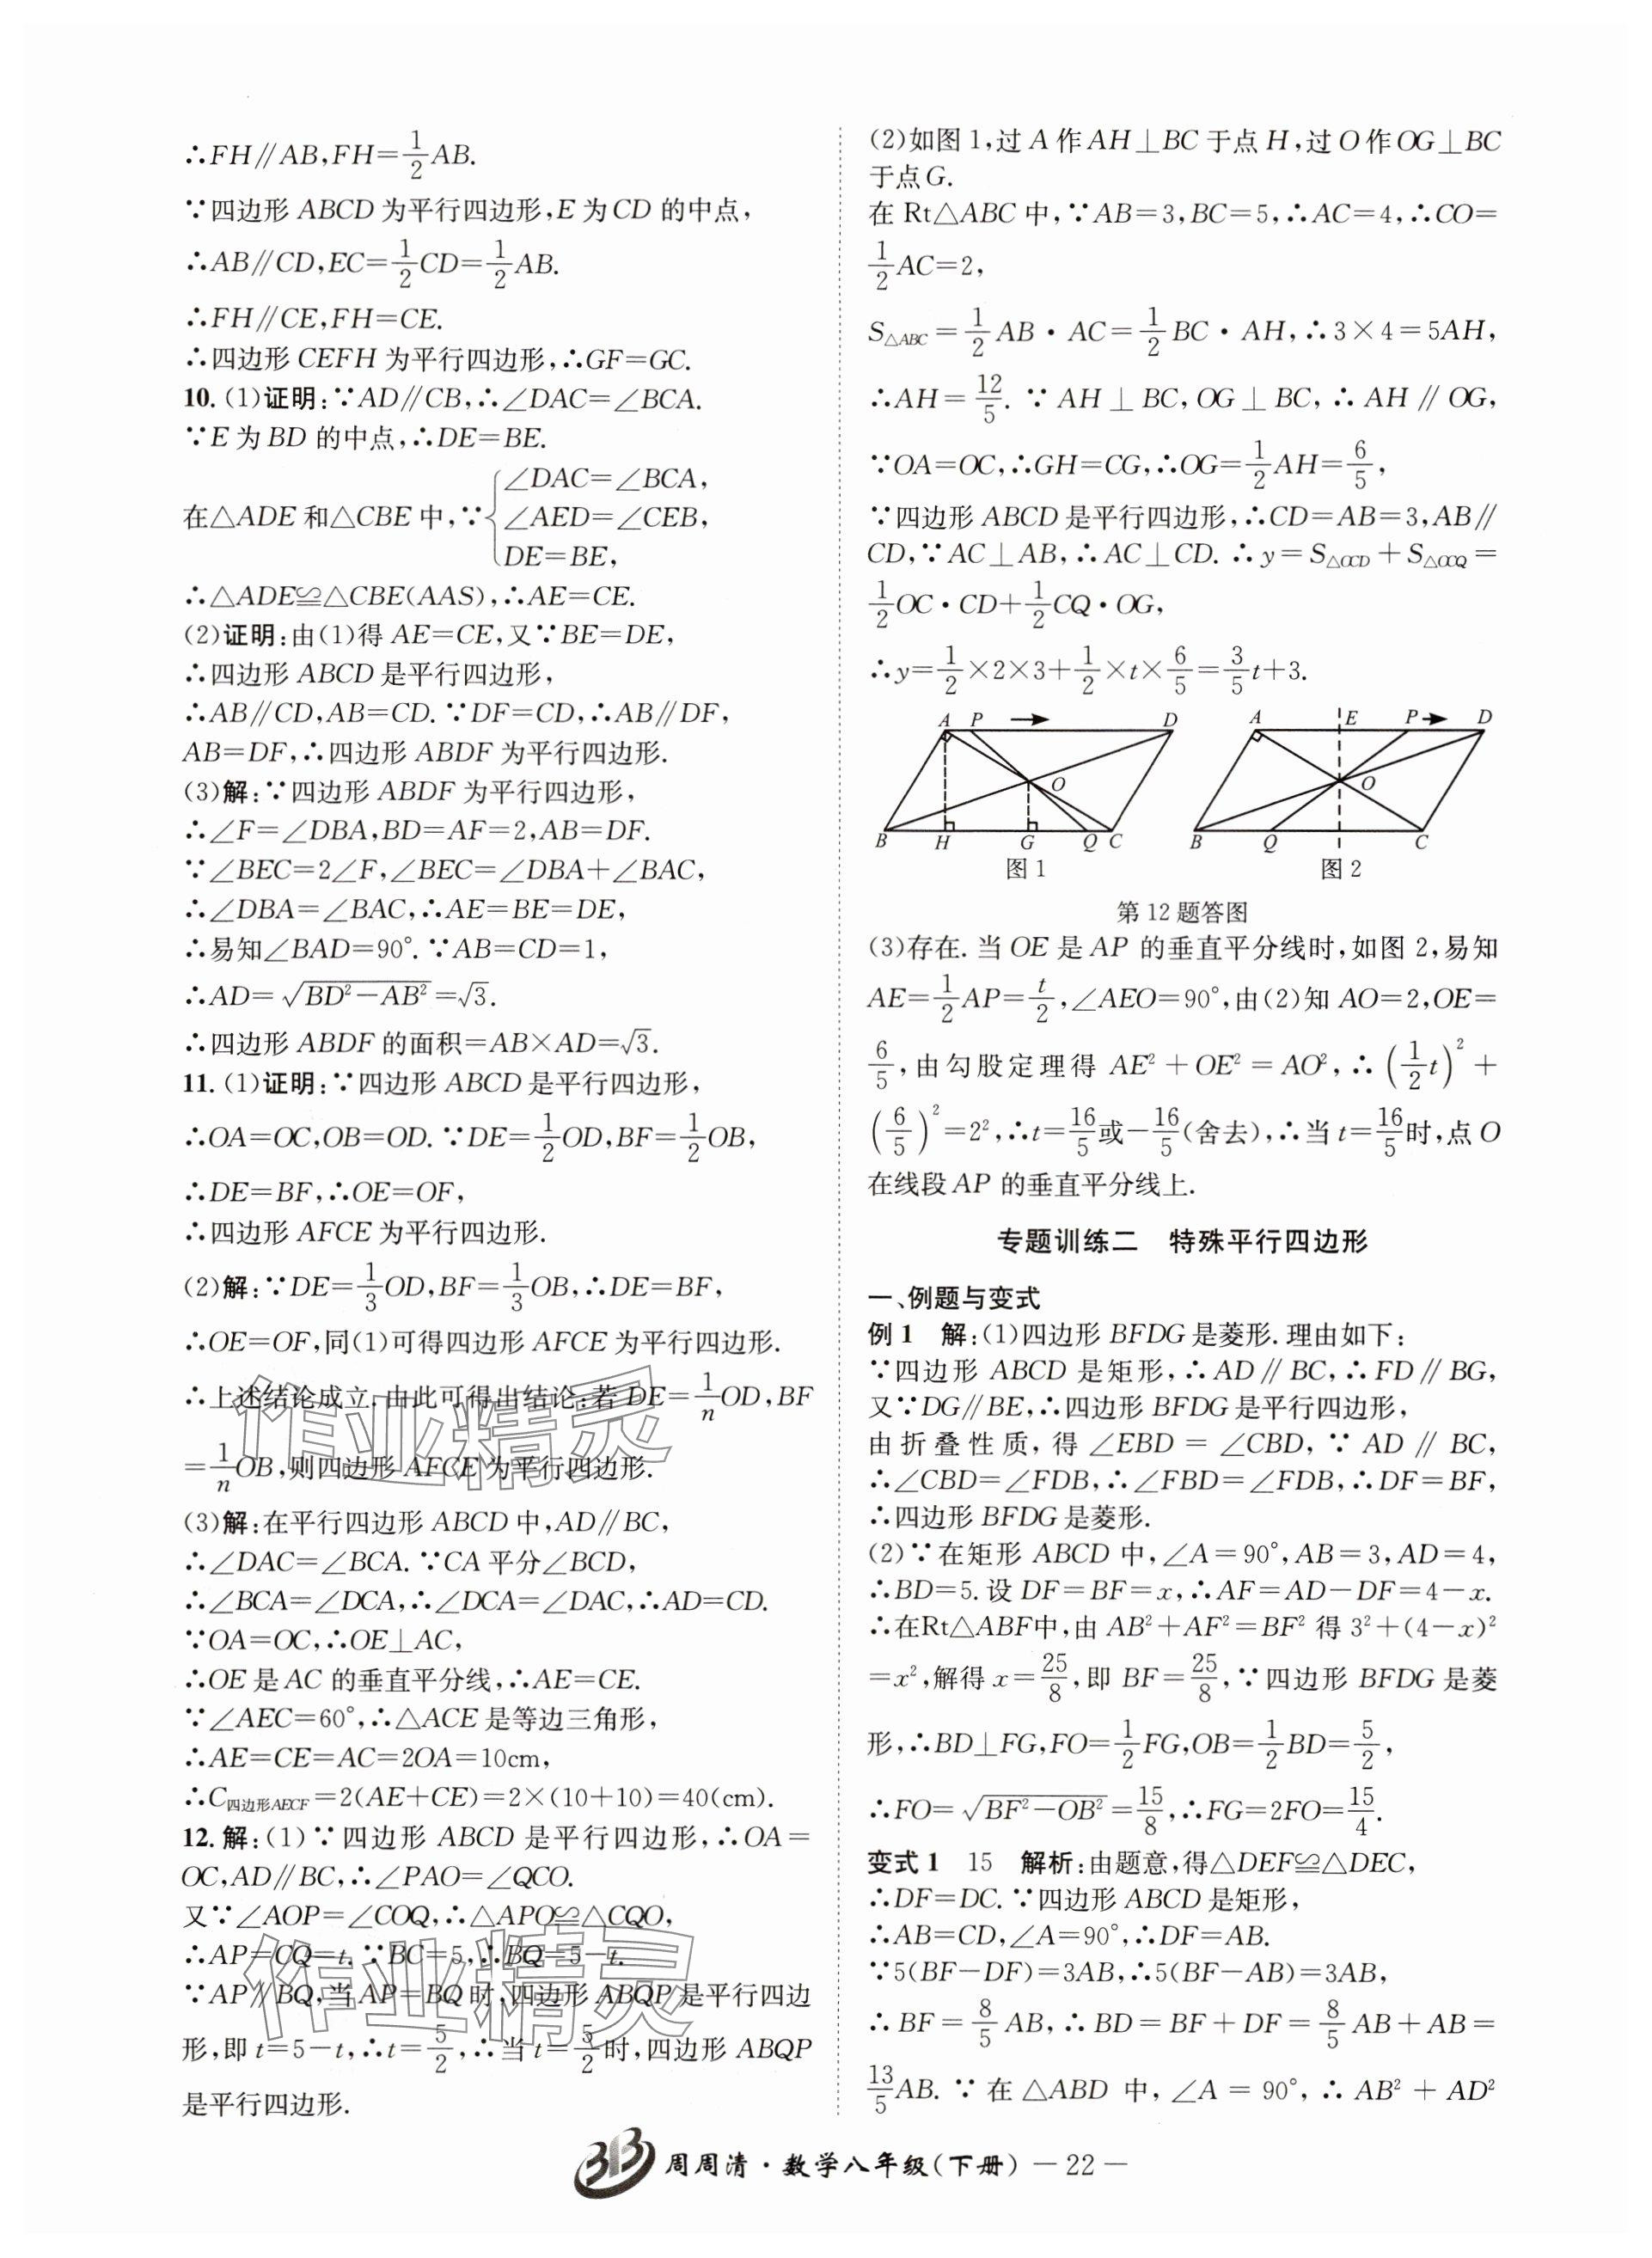 ∴FH∥AB,FH=1/2AB.
∵四边形ABCD为平行四边形,E为CD的中点,
∴AB∥CD,EC=1/2CD=1/2AB.
∴FH∥CE,FH=CE.
∴四边形CEFH为平行四边形,∴GF=GC.
10. (1)证明:∵AD∥CB,∴∠DAC=∠BCA.
∵E为BD的中点,∴DE=BE.
在△ADE和△CBE中,∵{∠DAC=∠BCA,
∠AED=∠CEB,
DE=BE,
∴△ADE≌△CBE(AAS),∴AE=CE.
(2)证明:由(1)得AE=CE,又∵BE=DE,
∴四边形ABCD是平行四边形,
∴AB∥CD,AB=CD. ∵DF=CD,∴AB∥DF,
AB=DF,∴四边形ABDF为平行四边形.
(3)解:∵四边形ABDF为平行四边形,
∴∠F=∠DBA,BD=AF=2,AB=DF.
∵∠BEC=2∠F,∠BEC=∠DBA+∠BAC,
∴∠DBA=∠BAC,∴AE=BE=DE,
∴易知∠BAD=90°. ∵AB=CD=1,
∴AD=√(BD²-AB²)=√3.
∴四边形ABDF的面积=AB×AD=√3.
11. (1)证明:∵四边形ABCD是平行四边形,
∴OA=OC,OB=OD. ∵DE=1/2OD,BF=1/2OB,
∴DE=BF,∴OE=OF,
∴四边形AFCE为平行四边形.
(2)解:∵DE=1/3OD,BF=1/3OB,∴DE=BF,
∴OE=OF,同(1)可得四边形AFCE为平行四边形.
∴上述结论成立.由此可得出结论:若DE=1/nOD,BF
=1/nOB,则四边形AFCE为平行四边形.
(3)解:在平行四边形ABCD中,AD∥BC,
∴∠DAC=∠BCA. ∵CA平分∠BCD,
∴∠BCA=∠DCA,∴∠DCA=∠DAC,∴AD=CD.
∵OA=OC,∴OE⊥AC,
∴OE是AC的垂直平分线,∴AE=CE.
∵∠AEC=60°,∴△ACE是等边三角形,
∴AE=CE=AC=2OA=10cm,
∴C四边形AECF=2(AE+CE)=2×(10+10)=40(cm).
12. 解:(1)∵四边形ABCD是平行四边形,∴OA=
OC,AD∥BC,∴∠PAO=∠QCO.
又∵∠AOP=∠COQ,∴△APO≌△CQO,
∴AP=CQ=t. ∵BC=5,∴BQ=5-t.
∵AP∥BQ,当AP=BQ时,四边形ABQP是平行四边
形,即t=5-t,∴t=5/2,∴当t=5/2时,四边形ABQP
是平行四边形.
(2)如图1,过A作AH⊥BC于点H,过O作OG⊥BC
于点G.
在Rt△ABC中,∵AB=3,BC=5,∴AC=4,∴CO=
1/2AC=2,
S△ABC=1/2AB·AC=1/2BC·AH,∴3×4=5AH,
∴AH=12/5. ∵AH⊥BC,OG⊥BC,∴AH∥OG,
∵OA=OC,∴GH=CG,∴OG=1/2AH=6/5,
∵四边形ABCD是平行四边形,∴CD=AB=3,AB∥
CD,∵AC⊥AB,∴AC⊥CD. ∴y=S△OCD+S△OCQ=
1/2OC·CD+1/2CQ·OG,
∴y=1/2×2×3+1/2×t×6/5=3/5t+3.
A P D
O
B H G Q C
图1
A E P D
O
B Q C
图2
第12题答图
(3)存在.当OE是AP的垂直平分线时,如图2,易知
AE=1/2AP=t/2,∠AEO=90°,由(2)知AO=2,OE=
6/5,由勾股定理得AE²+OE²=AO²,∴(1/2t)²+
(6/5)²=2²,∴t=16/5或-16/5(舍去),∴当t=16/5时,点O
在线段AP的垂直平分线上.
专题训练二 特殊平行四边形
一、例题与变式
例1 解:(1)四边形BFDG是菱形.理由如下:
∵四边形ABCD是矩形,∴AD∥BC,∴FD∥BG,
又∵DG∥BE,∴四边形BFDG是平行四边形,
由折叠性质,得∠EBD=∠CBD,∵AD∥BC,
∴∠CBD=∠FDB,∴∠FBD=∠FDB,∴DF=BF,
∴四边形BFDG是菱形.
(2)∵在矩形ABCD中,∠A=90°,AB=3,AD=4,
∴BD=5.设DF=BF=x,∴AF=AD-DF=4-x.
∴在Rt△ABF中,由AB²+AF²=BF²得3²+(4-x)²
=x²,解得x=25/8,即BF=25/8,∵四边形BFDG是菱
形,∴BD⊥FG,FO=1/2FG,OB=1/2BD=5/2,
∴FO=√(BF²-OB²)=15/8,∴FG=2FO=15/4.
变式1 15 解析:由题意,得△DEF≌△DEC,
∴DF=DC. ∵四边形ABCD是矩形,
∴AB=CD,∠A=90°,∴DF=AB.
∵5(BF-DF)=3AB,∴5(BF-AB)=3AB,
∴BF=8/5AB,∴BD=BF+DF=8/5AB+AB=
13/5AB. ∵在△ABD中,∠A=90°,∴AB²+AD²
作业精灵
作业精灵
周周清·数学八年级(下册) — 22 —